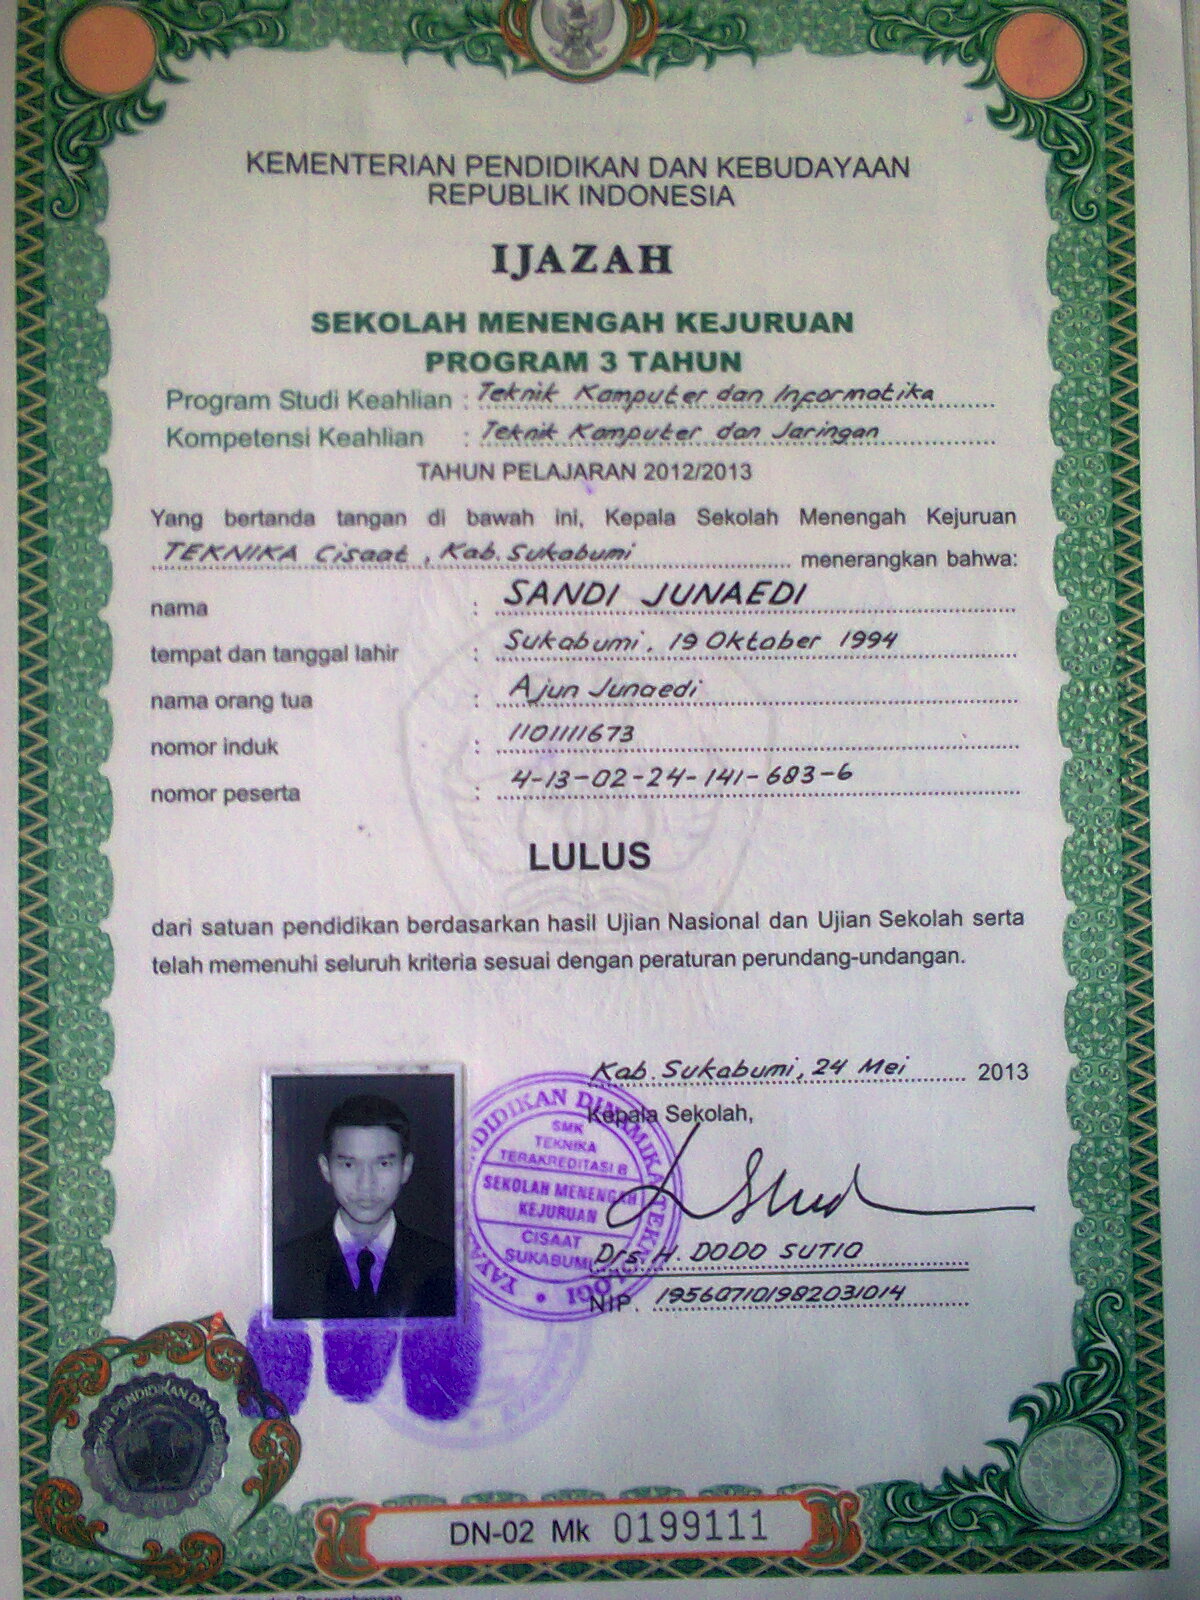 KEMENTERIAN PENDIDIKAN DAN KEBUDAYAAN
REPUBLIK INDONESIA
IJAZAH
SEKOLAH MENENGAH KEJURUAN
PROGRAM 3 TAHUN
Program Studi Keahlian : Teknik Komputer dan Informatika
Kompetensi Keahlian : Teknik Komputer dan Jaringan
TAHUN PELAJARAN 2012/2013
Yang bertanda tangan di bawah ini, Kepala Sekolah Menengah Kejuruan
TEKNIKA Cisaat, Kab. Sukabumi menerangkan bahwa:
nama : SANDI JUNAEDI
tempat dan tanggal lahir : Sukabumi, 19 Oktober 1994
nama orang tua : Ajun Junaedi
nomor induk : 1101111673
nomor peserta : 4-13-02-24-141-683-6
LULUS
dari satuan pendidikan berdasarkan hasil Ujian Nasional dan Ujian Sekolah serta
telah memenuhi seluruh kriteria sesuai dengan peraturan perundang-undangan.
Kab. Sukabumi, 24 Mei 2013
Kepala Sekolah,
SMK
TEKNIKA
TERAKREDITASI B
SEKOLAH MENENGAH
KEJURUAN
CISAAT
SUKABUMI
Drs. H. DODO SUTIO
NIP. 195607101982031014
DN-02 Mk 0199111